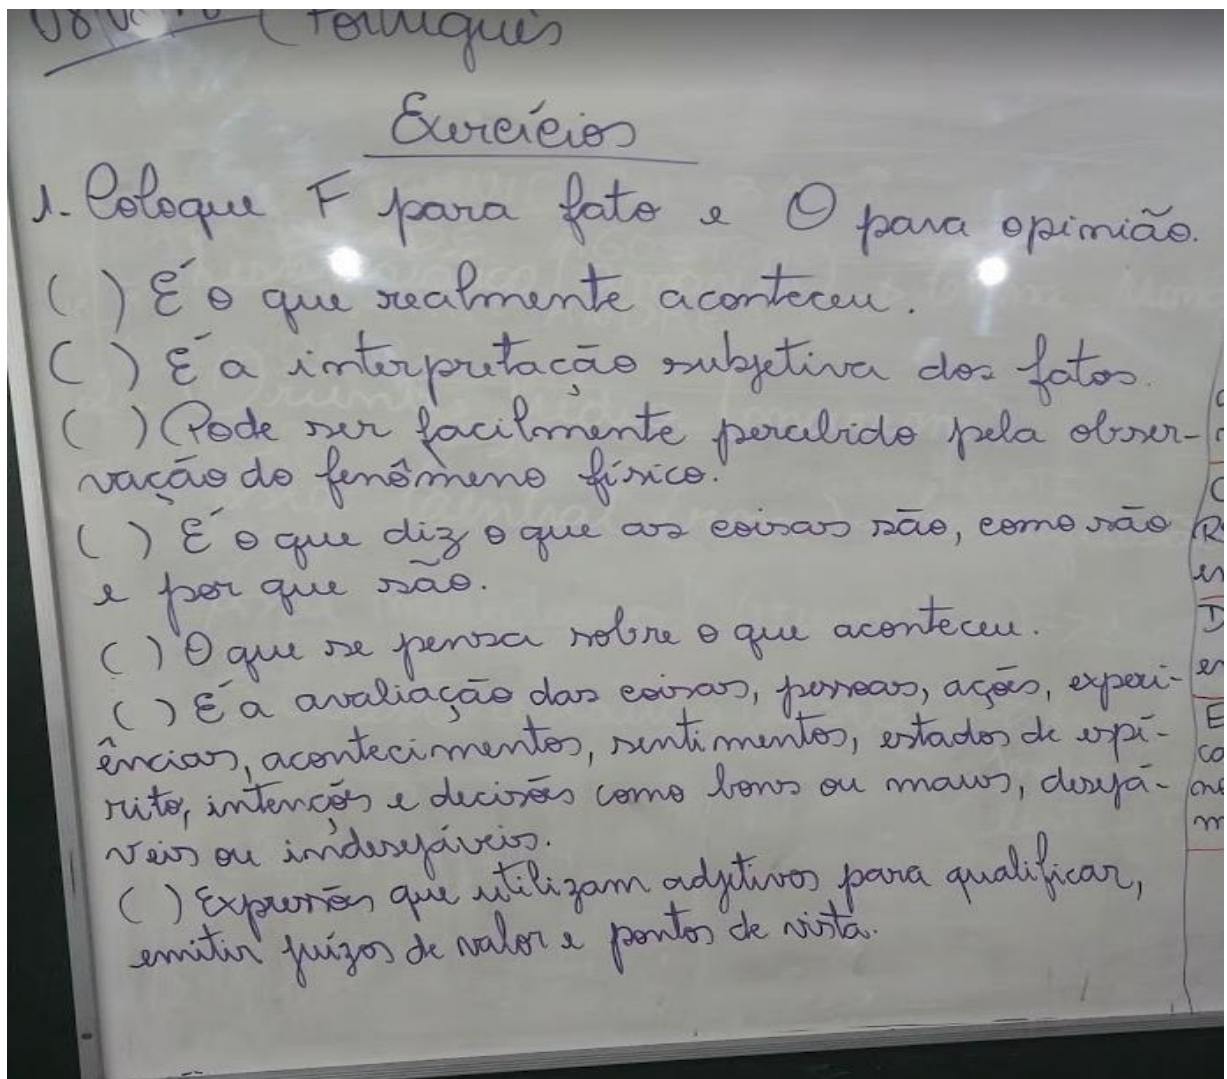 Português
Exercícios
1. Coloque F para fato e O para opinião.
( ) É o que realmente aconteceu.
( ) É a interpretação subjetiva dos fatos.
( ) Pode ser facilmente percebido pela obser-
vação do fenômeno físico.
( ) É o que diz o que as coisas são, como são
e por que são.
( ) O que se pensa sobre o que aconteceu.
( ) É a avaliação das coisas, pessoas, ações, experi-
ências, acontecimentos, sentimentos, estados de espí-
rito, intenções e decisões como bons ou maus, desejá-
veis ou indesejáveis.
( ) Expressões que utilizam adjetivos para qualificar,
emitir juízos de valor e pontos de vista.